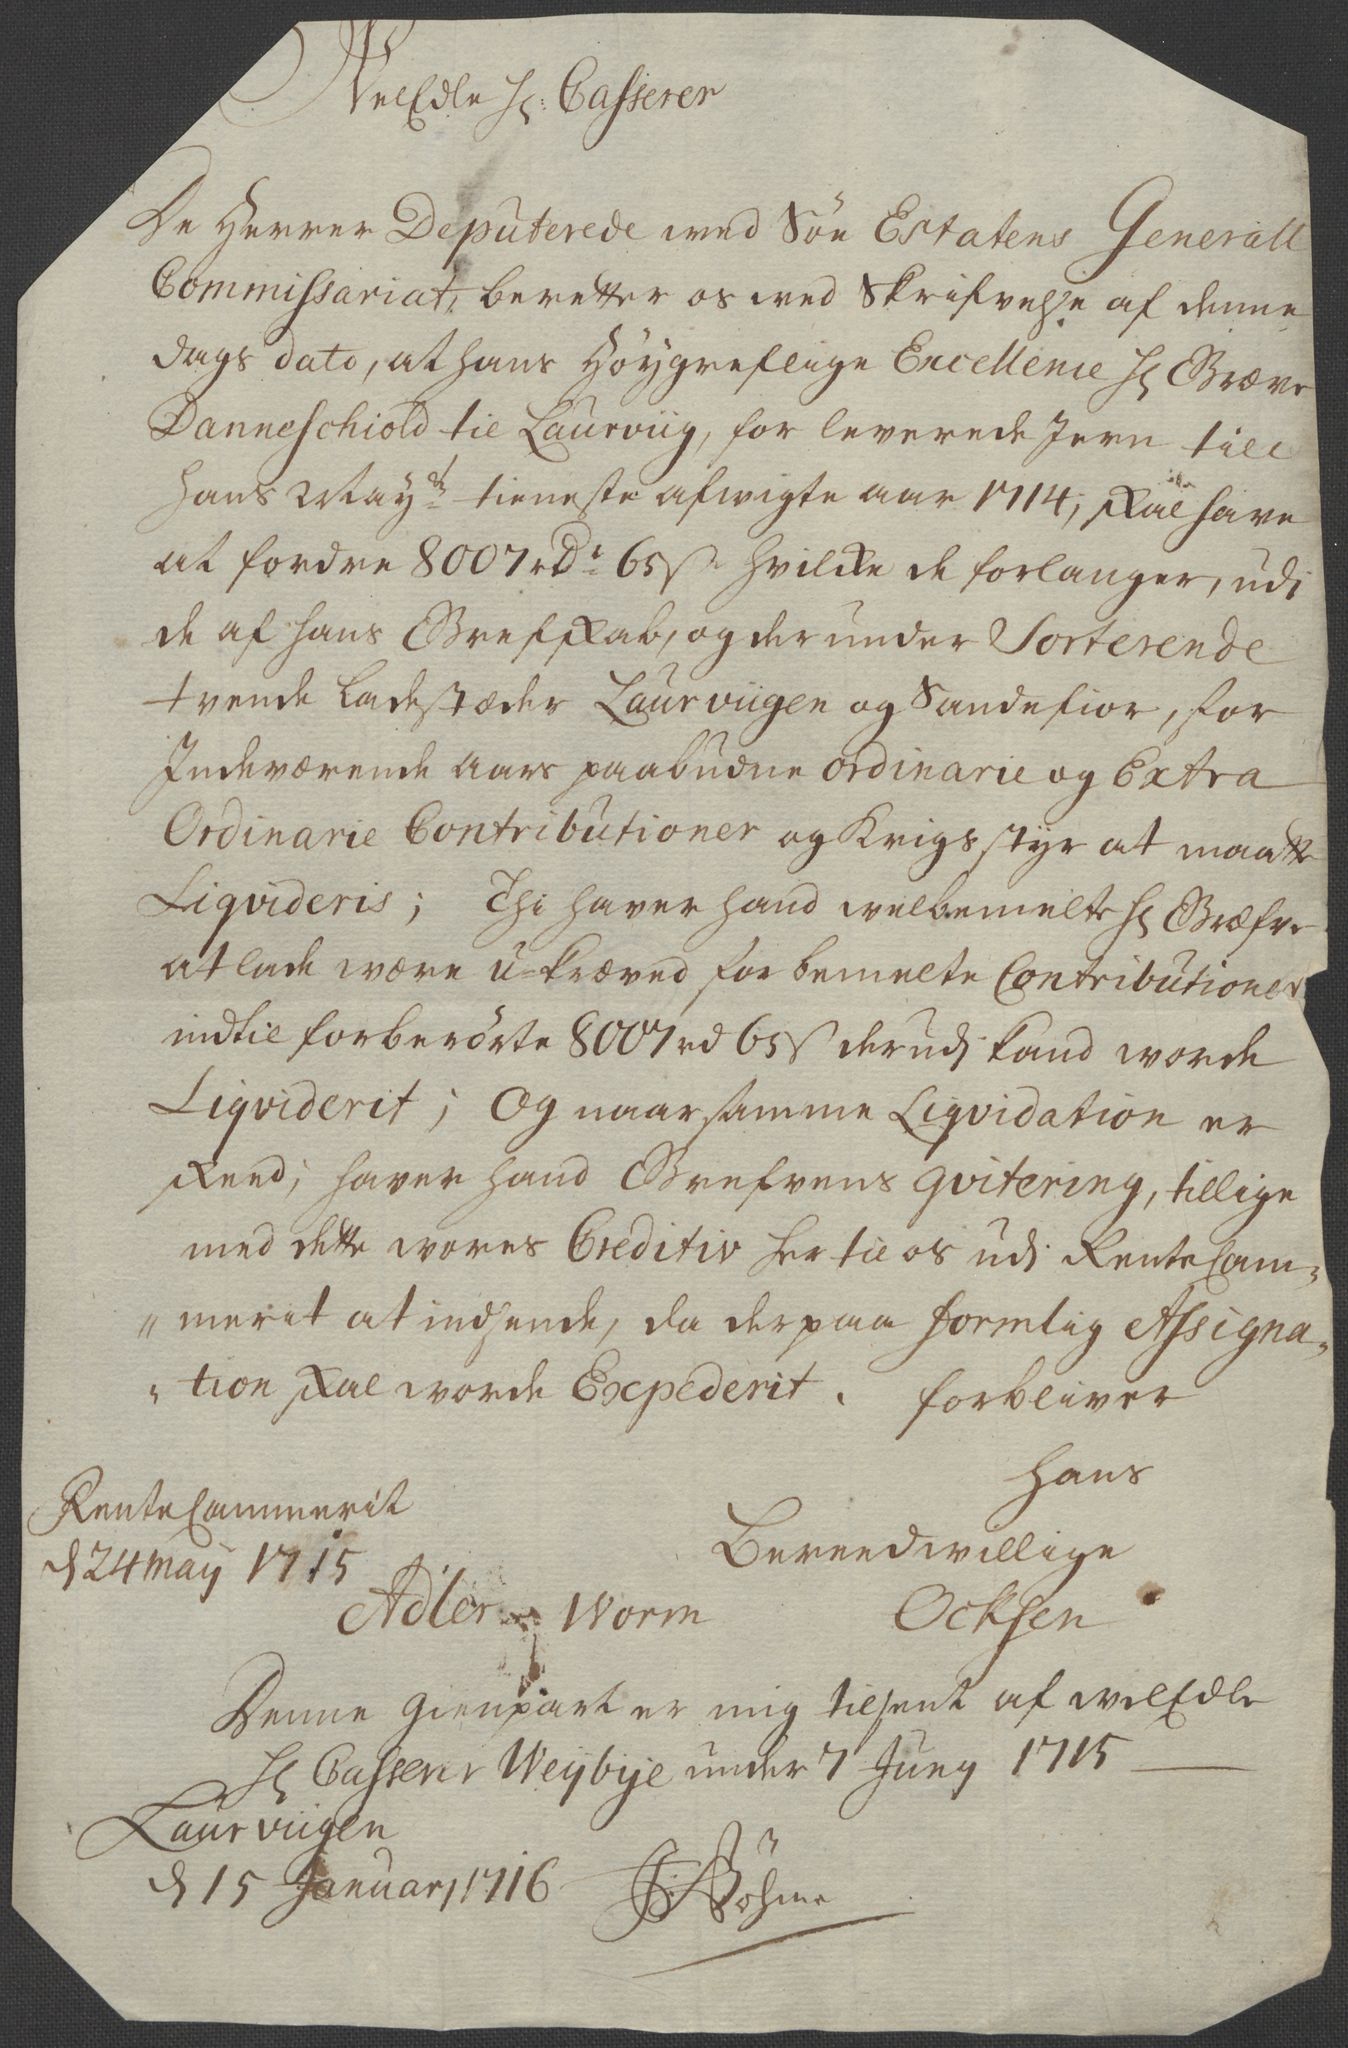 VelEdle Hr: Casserer
De Herrer Deputerede wed Söe Estatens Generall
Commissariat, beretter os wed Skrifvelse af denne
dags dato, at hans Höygreflige Excellence Hr Græve
Danneschiold til Laurviig, for leverede Jern till
hans Mayts tieneste afwigte aar 1714, skal have
at fordre 8007 rdr 65 s hvilke de forlanger, udi
de af hans Grefskab, og der under Sorterende
tvende ladestæder Laurviigen og Sandefior, for
Indeværende Aars paabudne ordinarie og Extra
Ordinarie Contributioner og Krigsstyr at maatte
Liqvideris; Thi haver hand welbemelte Hr Græfve
at lade være u-kræved for bemelte Contributioner
indtil forberörte 8007 rd 65 s derudi kand worde
Liqviderit; Og naar samme Liqvidation er
skeed, haver hand Grefvens qvitering, tillige
med dette wores Creditiv her til os udi RenteCam-
"merit at indsende, da derpaa formlig Assigna-
"tion skal worde Expederit. forbliver
Hans
RenteCammerit
d 24 may 1715
Bereedwillige
Adler Worm Ocksen
Denne gienpart er mig tilsent af welEdle
Hr Casserer Weybye under 7 Juny 1715
Laurviigen
d 15 Januarj 1716 Böhme